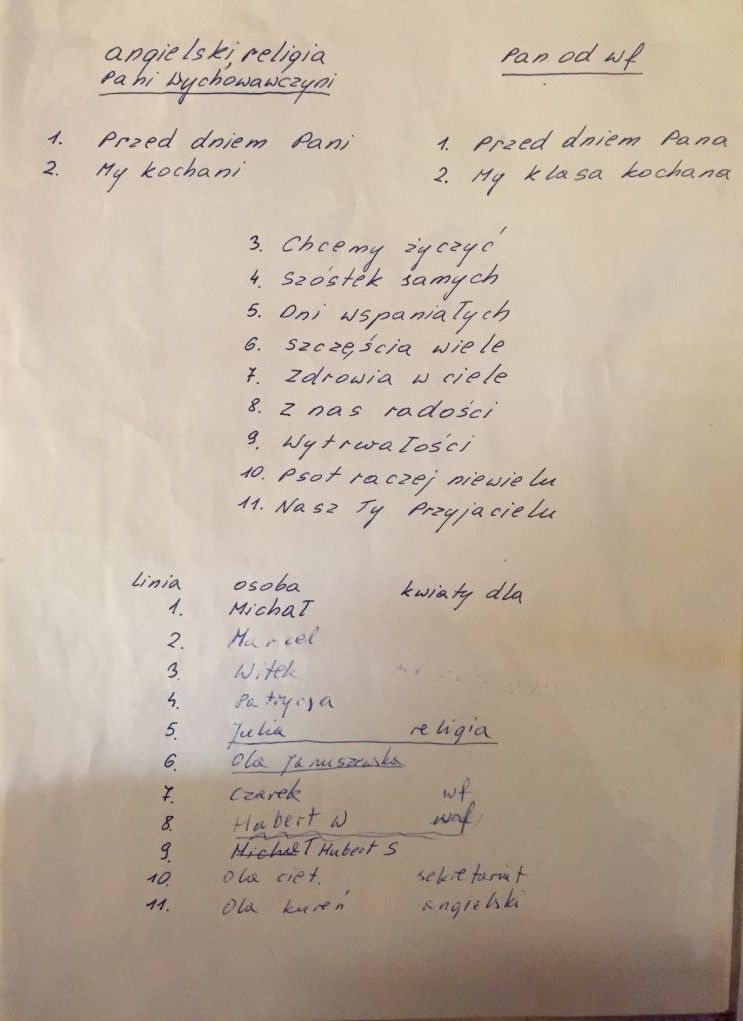 angielski, religia
Pani Wychowawczyni
Pan od wf
1. Przed dniem Pani
2. My kochani
1. Przed dniem Pana
2. My klasa kochana
3. Chcemy życzyć
4. Szóstek samych
5. Dni wspaniałych
6. Szczęścia wiele
7. Zdrowia w ciele
8. Z nas radości
9. Wytrwałości
10. Psot raczej niewielu
11. Nasz Ty Przyjacielu
Linia osoba kwiaty dla
1. Michał
2. Marcel
3. Witek
4. Patrycja
5. Julia religia
6. Ola Januszewska
7. Czarek wf
8. Hubert W
9. Michał Hubert S
10. Ola ciet. sekretariat
11. Ola kureń angielski